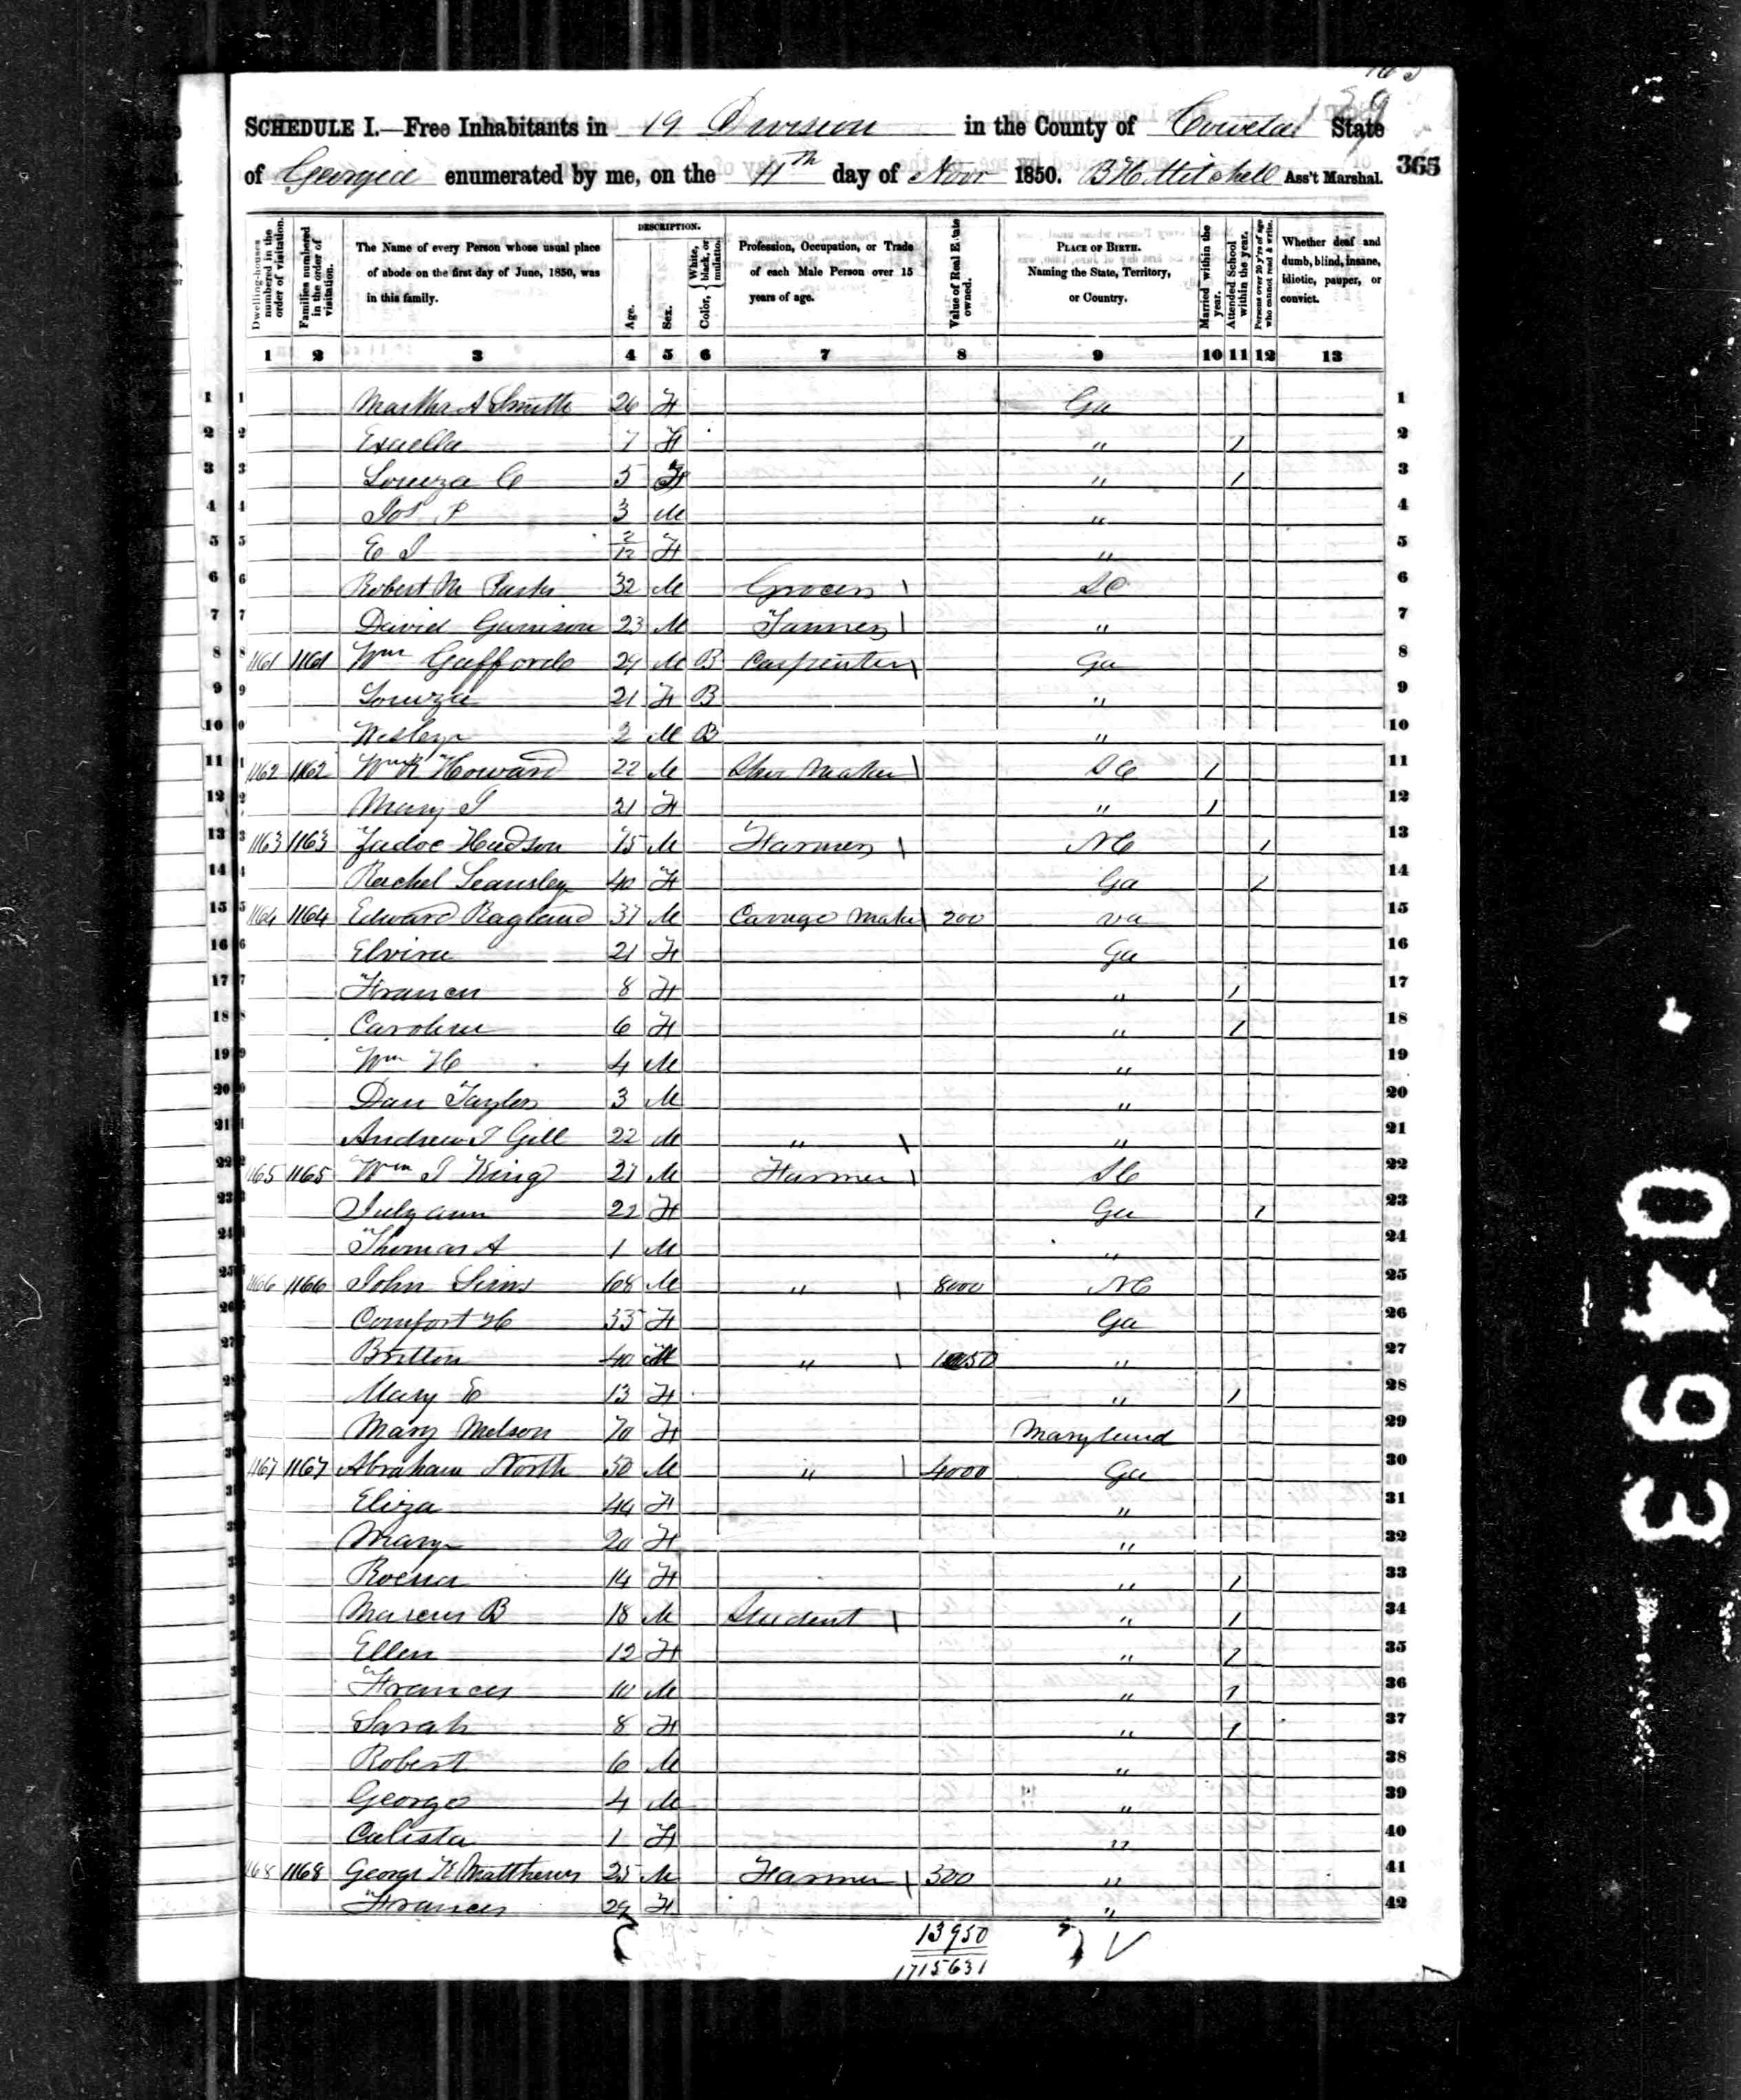 SCHEDULE I.—Free Inhabitants in 19 Division in the County of Coweta State
of Georgia enumerated by me, on the 4th day of Novr 1850. B H Mitchell Ass't Marshal. 365
Dwelling-houses numbered in the order of visitation.
Families numbered in the order of visitation.
The Name of every Person whose usual place of abode on the first day of June, 1850, was in this family.
DESCRIPTION.
Age.
Sex.
Color, White, black, or mulatto.
Profession, Occupation, or Trade of each Male Person over 15 years of age.
Value of Real Estate owned.
PLACE OF BIRTH. Naming the State, Territory, or Country.
Married within the year.
Attended School within the year.
Persons over 20 y'rs of age who cannot read & write.
Whether deaf and dumb, blind, insane, idiotic, pauper, or convict.
1 2 3 4 5 6 7 8 9 10 11 12 13
1 Martha A Smith 26 F Ga 1
2 7 F " 1 2
3 Louiza C 5 F " 1 3
4 Jos P 3 M " 4
5 E J 2/12 F " 5
6 Robert M Parks 32 M Grocer SC 6
7 David Garrison 23 M Tanner " 7
8 1161 1161 Wm Gafford 29 M B Carpenter Ga 8
9 Louiza 21 F B " 9
10 Wesley 2 M B " 10
11 1162 1162 Wm R Howard 22 M Shoe Maker SC 1 11
12 Mary J 21 F " 1 12
13 1163 1163 Zadoc Hudson 75 M Farmer NC 1 13
14 Rachel 40 F Ga 1 14
15 1164 1164 Edward Ragland 37 M Carrage Maker 200 Va 15
16 Elvira 21 F Ga 16
17 Frances 8 F " 1 17
18 Caroline 6 F " 1 18
19 Wm H 4 M " 19
20 Dan Taylor 3 M " 20
21 Andrew J Gill 22 M " " 21
22 1165 1165 Wm J King 27 M Farmer SC 22
23 July ann 22 F Ga 1 23
24 Thomas A 1 M " 24
25 1166 1166 John Sims 68 M " 8000 NC 25
26 Comfort H 35 F Ga 26
27 Britton 40 M " " 27
28 Mary E 13 F " 1 28
29 Mary Melson 70 F Maryland 29
30 1167 1167 Abraham North 50 M " 4000 Ga 30
31 Eliza 44 F " 31
32 Mary 20 F " 32
33 Roena 14 F " 1 33
34 Marcus B 18 M Student " 1 34
35 Ellen 12 F " 1 35
36 Frances 10 M " 1 36
37 Sarah 8 F " 1 37
38 Robert 6 M " 38
39 George 4 M " 39
40 Calista 1 F " 40
41 1168 1168 George Matthews 25 M Farmer 300 " 41
42 Frances 29 F " 42
13950
1715631
0493